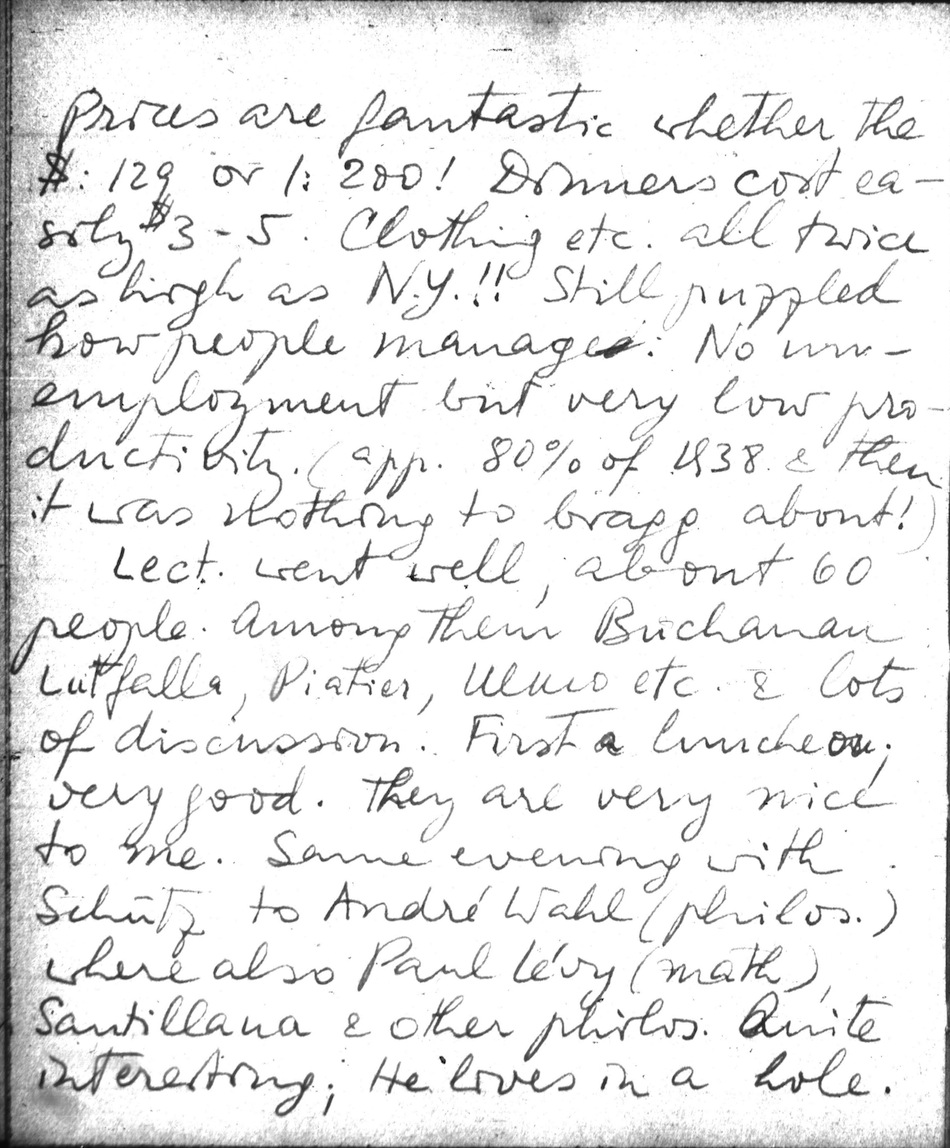 Prices are fantastic whether the
$: 129 or 1: 200! Dinners cost ea-
sily $3 - 5. Clothing etc. all twice
as high as N.Y.!! Still puzzled
how people manage. No un-
employment but very low pro-
ductivity. (app. 80% of 1938 & then
it was nothing to bragg about!)
Lect. went well, about 60
people. Among them Buchanan
Lutfalla, Piatier, Ullmo etc. & lots
of discussion. First a luncheon;
very good. They are very nice
to me. Same evening with
Schütz to André Wahl (philos.)
where also Paul Lévy (math),
Santillana & other philos. Quite
interesting; He lives in a hole.